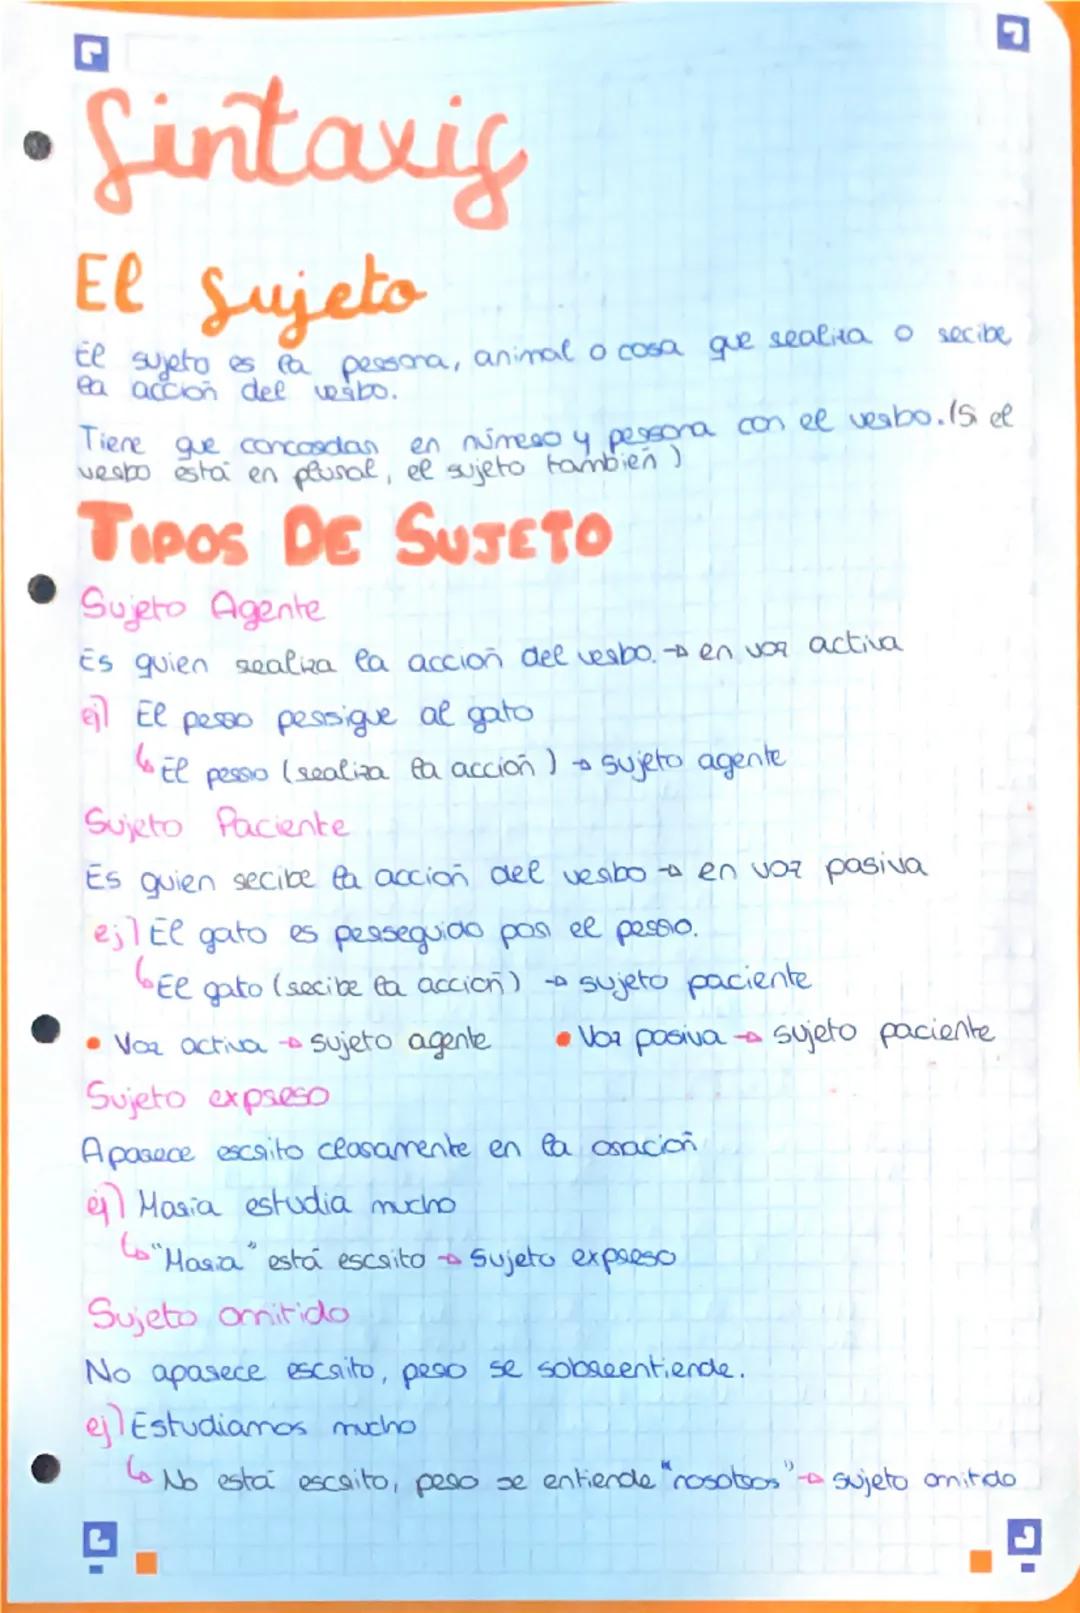 Sintaxis
El Sujeto
El sujeto es la persona, animal o cosa que realiza o recibe
la acción del verbo.
Tiene que concordar en número y persona con el verbo. (Si el
verbo está en plural, el sujeto también)
TIPOS DE SUJETO
Sujeto Agente
Es quien realiza la acción del verbo. → en voz activa
ej) El perro persigue al gato
↳ El perro (realiza la acción) → sujeto agente
Sujeto Paciente
Es quien recibe la acción del verbo → en voz pasiva
ej) El gato es perseguido por el perro.
↳ El gato (recibe la acción) → sujeto paciente
• Voz activa → sujeto agente • Voz pasiva → sujeto paciente
Sujeto expreso
Aparece escrito claramente en la oración
ej) María estudia mucho
↳ "María" está escrito → Sujeto expreso
Sujeto omitido
No aparece escrito, pero se sobreentiende.
ej) Estudiamos mucho
↳ No está escrito, pero se entiende "nosotros" → sujeto omitido